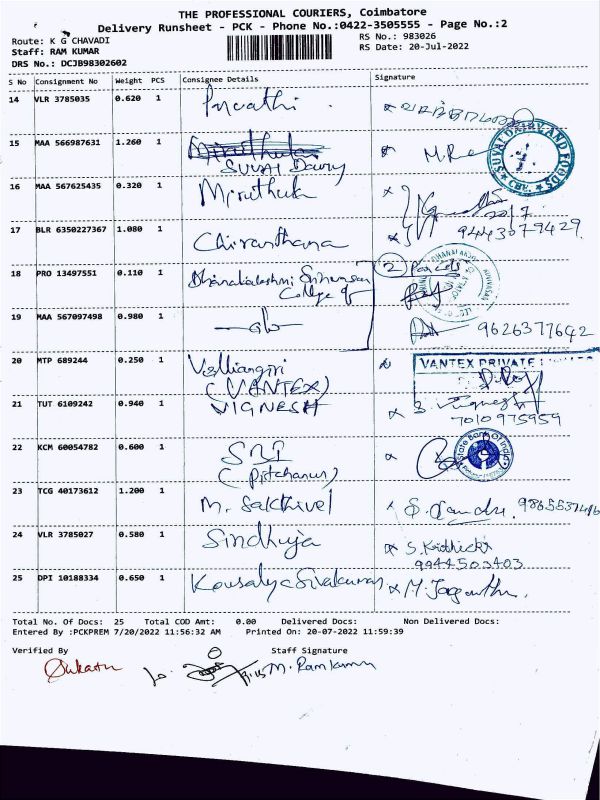 THE PROFESSIONAL COURIERS, Coimbatore
Delivery Runsheet - PCK - Phone No.:0422-3505555 - Page No.:2
Route: K G CHAVADI
RS No.: 983026
Staff: RAM KUMAR
RS Date: 20-Jul-2022
DRS No.: DCJB98302602
S No Consignment No Weight PCS Consignee Details Signature
14 VLR 3785035 0.620 1
15 MAA 566987631 1.260 1
SUVAI Dairy
SUVAI DAIRY AND FOODS
CBE.
16 MAA 567625435 0.320 1 Miruthula
17 BLR 6350227367 1.080 1 Chiranthana 9443079429
18 PRO 13497551 0.110 1 Dhanalakshmi Srinivasan College of 2 Parcels
19 MAA 567097498 0.980 1 9626377642
20 MTP 689244 0.250 1 Velliangiri
(VANTEX)
VANTEX PRIVATE
21 TUT 6109242 0.940 1 VIGNESH S. Vignesh
7010975959
22 KCM 60054782 0.600 1 SBI
State Bank Of India
23 TCG 40173612 1.200 1 M. Sakthivel
24 VLR 3785027 0.580 1 Sindhuja
9944503403
25 DPI 10188334 0.650 1 Kousalya Sivakumar
Total No. Of Docs: 25 Total COD Amt: 0.00 Delivered Docs: Non Delivered Docs:
Entered By :PCKPREM 7/20/2022 11:56:32 AM Printed On: 20-07-2022 11:59:39
Verified By Staff Signature
M. Ramkumar